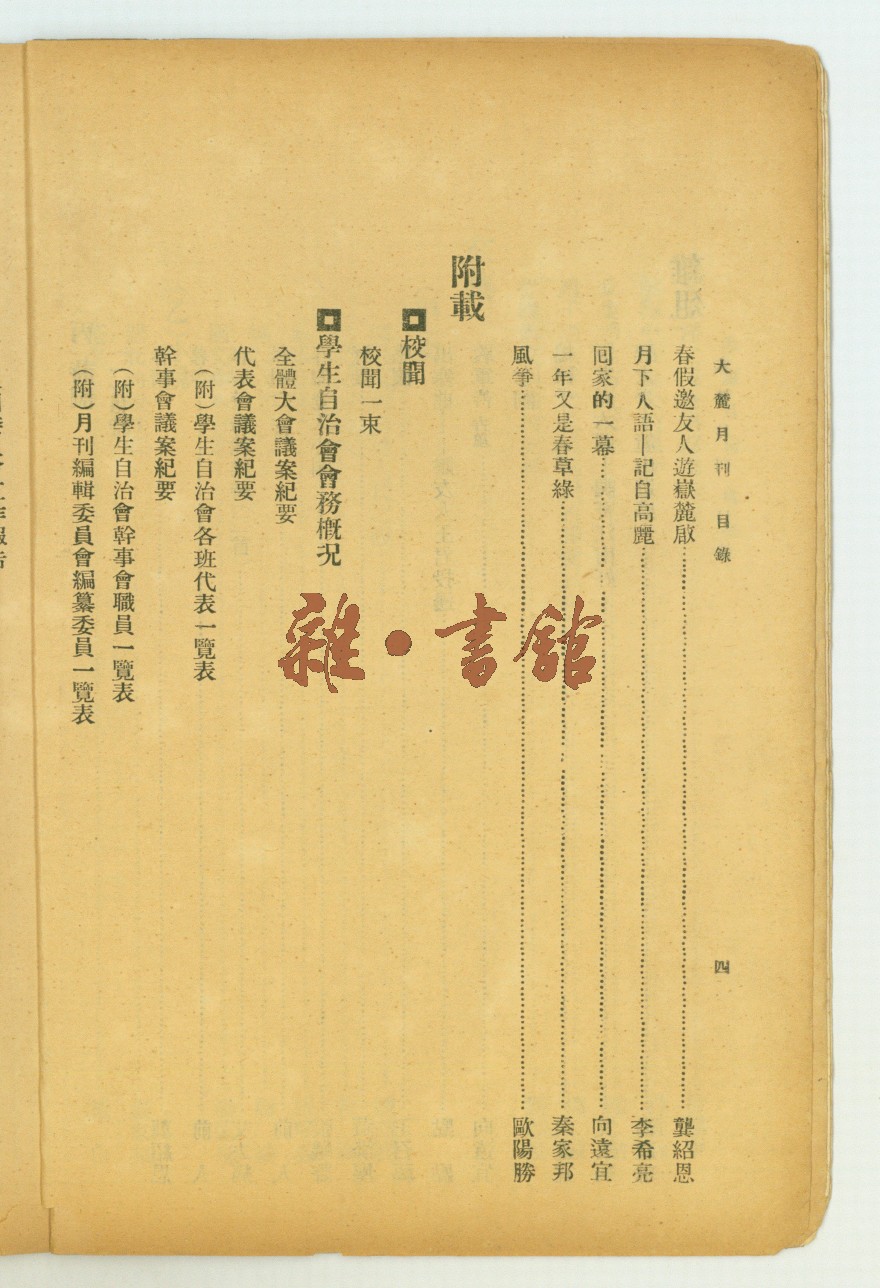 大麓月刊 目錄 四
春假邀友人遊嶽麓啟……龔紹恩
月下人語—記自高麗……李希亮
囘家的一幕……向遠宜
一年又是春草綠……秦家邦
風爭……歐陽勝
附載
校聞
校聞一束
學生自治會會務概况
全體大會議案紀要
代表會議案紀要
(附)學生自治會各班代表一覽表
幹事會議案紀要
(附)學生自治會幹事會職員一覽表
(附)月刊編輯委員會編纂委員一覽表
雜·書館